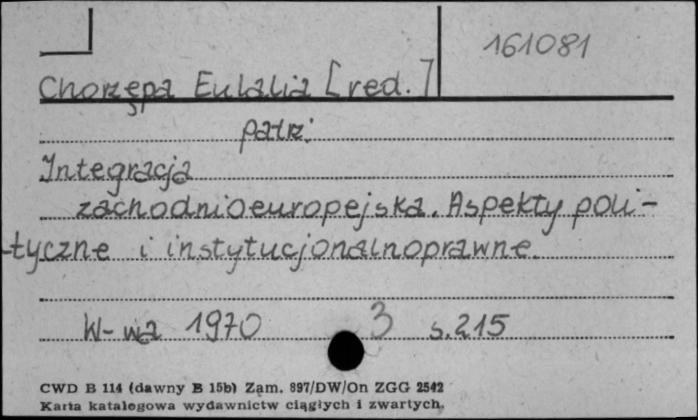 161081
Chorzępa Eulalia [red.]
patrz:
Integracja
zachodnioeuropejska. Aspekty poli-
-tyczne i instytucjonalnoprawne.
W-wa 1970 3 s.215
CWD B 114 (dawny B 15b) Zam. 897/DW/On ZGG 2542
Karta katalogowa wydawnictw ciągłych i zwartych.